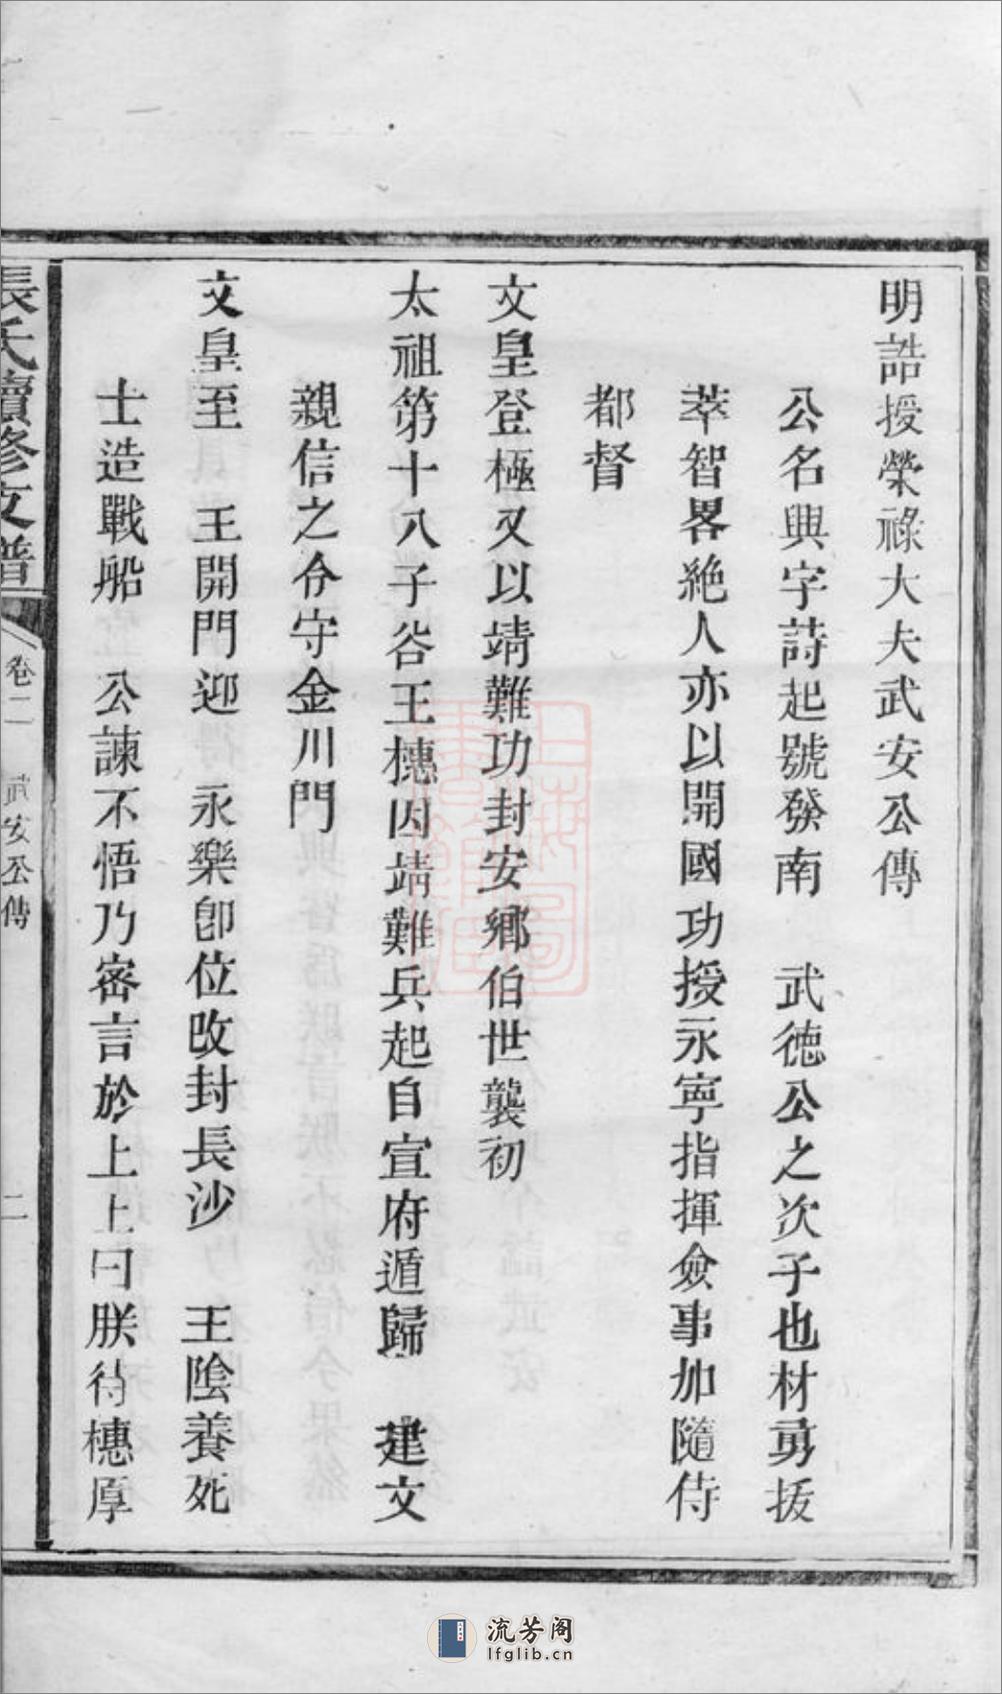 明誥授榮祿大夫武安公傳
公名興字詩起號發南　武德公之次子也材勇拔
萃智畧絶人亦以開國功授永寧指揮僉事加隨侍
都督
文皇登極又以靖難功封安鄉伯世襲初
太祖第十八子谷王橞因靖難兵起自宣府遁歸　建文
親信之令守金川門
文皇至　王開門迎　永樂卽位改封長沙　王陰養死
士造戰船　公諫不悟乃密言於上上曰朕待橞厚
張氏續修支譜
卷二　武安公傳
二
上海圖書館藏
流芳阁
lfglib.cn